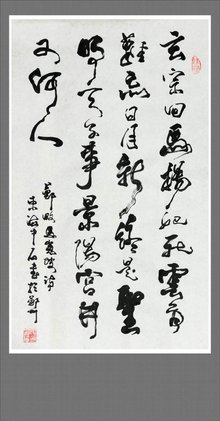 玄宗回馬楊妃死雲雨
難忘日月新終是聖
明天子事景陽宮井
又何人
鄭畋馬嵬坡詩
石書於鄭州